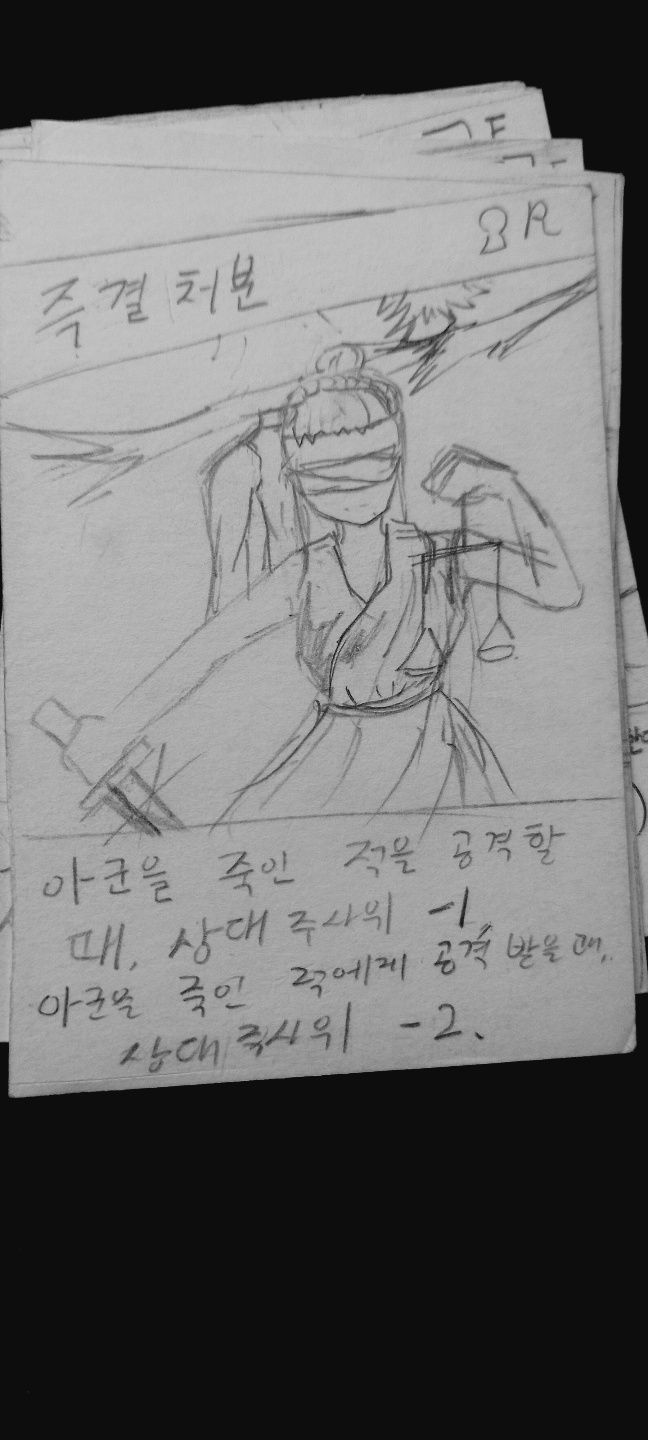 R
즉결 처분
아군을 죽인 적을 공격할
때, 상대 주사위 -1,
아군을 죽인 적에게 공격 받을 때,
상대 주사위 -2.